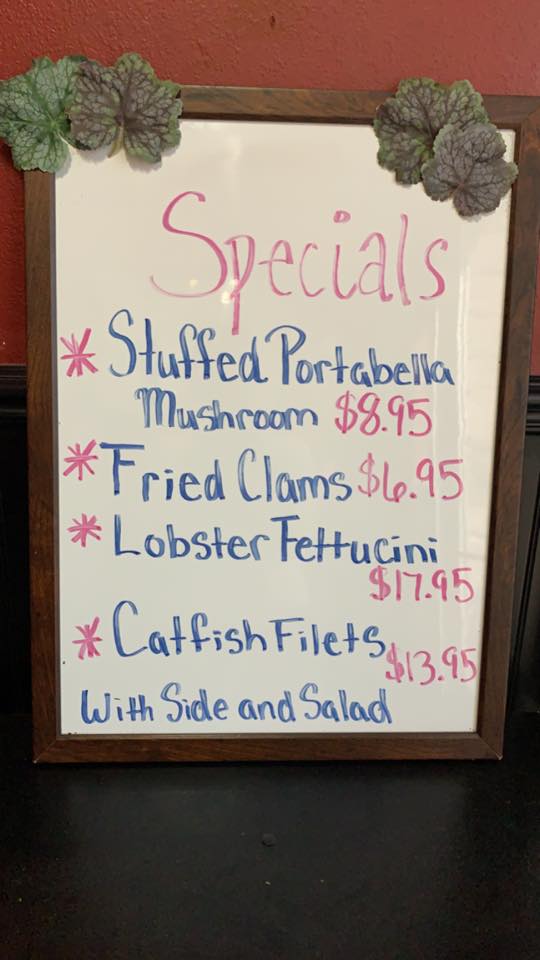 Specials
* Stuffed Portabella
Mushroom $8.95
* Fried Clams $6.95
* Lobster Fettucini
$17.95
* Catfish Filets
$13.95
With Side and Salad